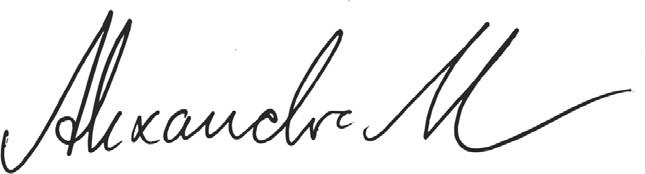 Alexandra M